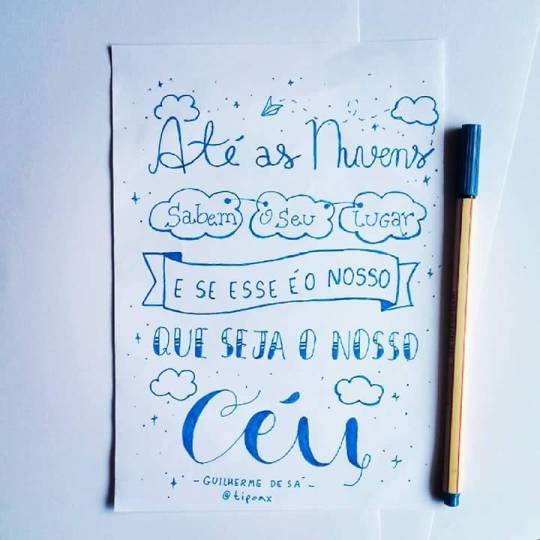 Até as Nuvens
Sabem o seu Lugar
E SE ESSE É O NOSSO
QUE SEJA O NOSSO
Céu
- GUILHERME DE SÁ -
@tiponx